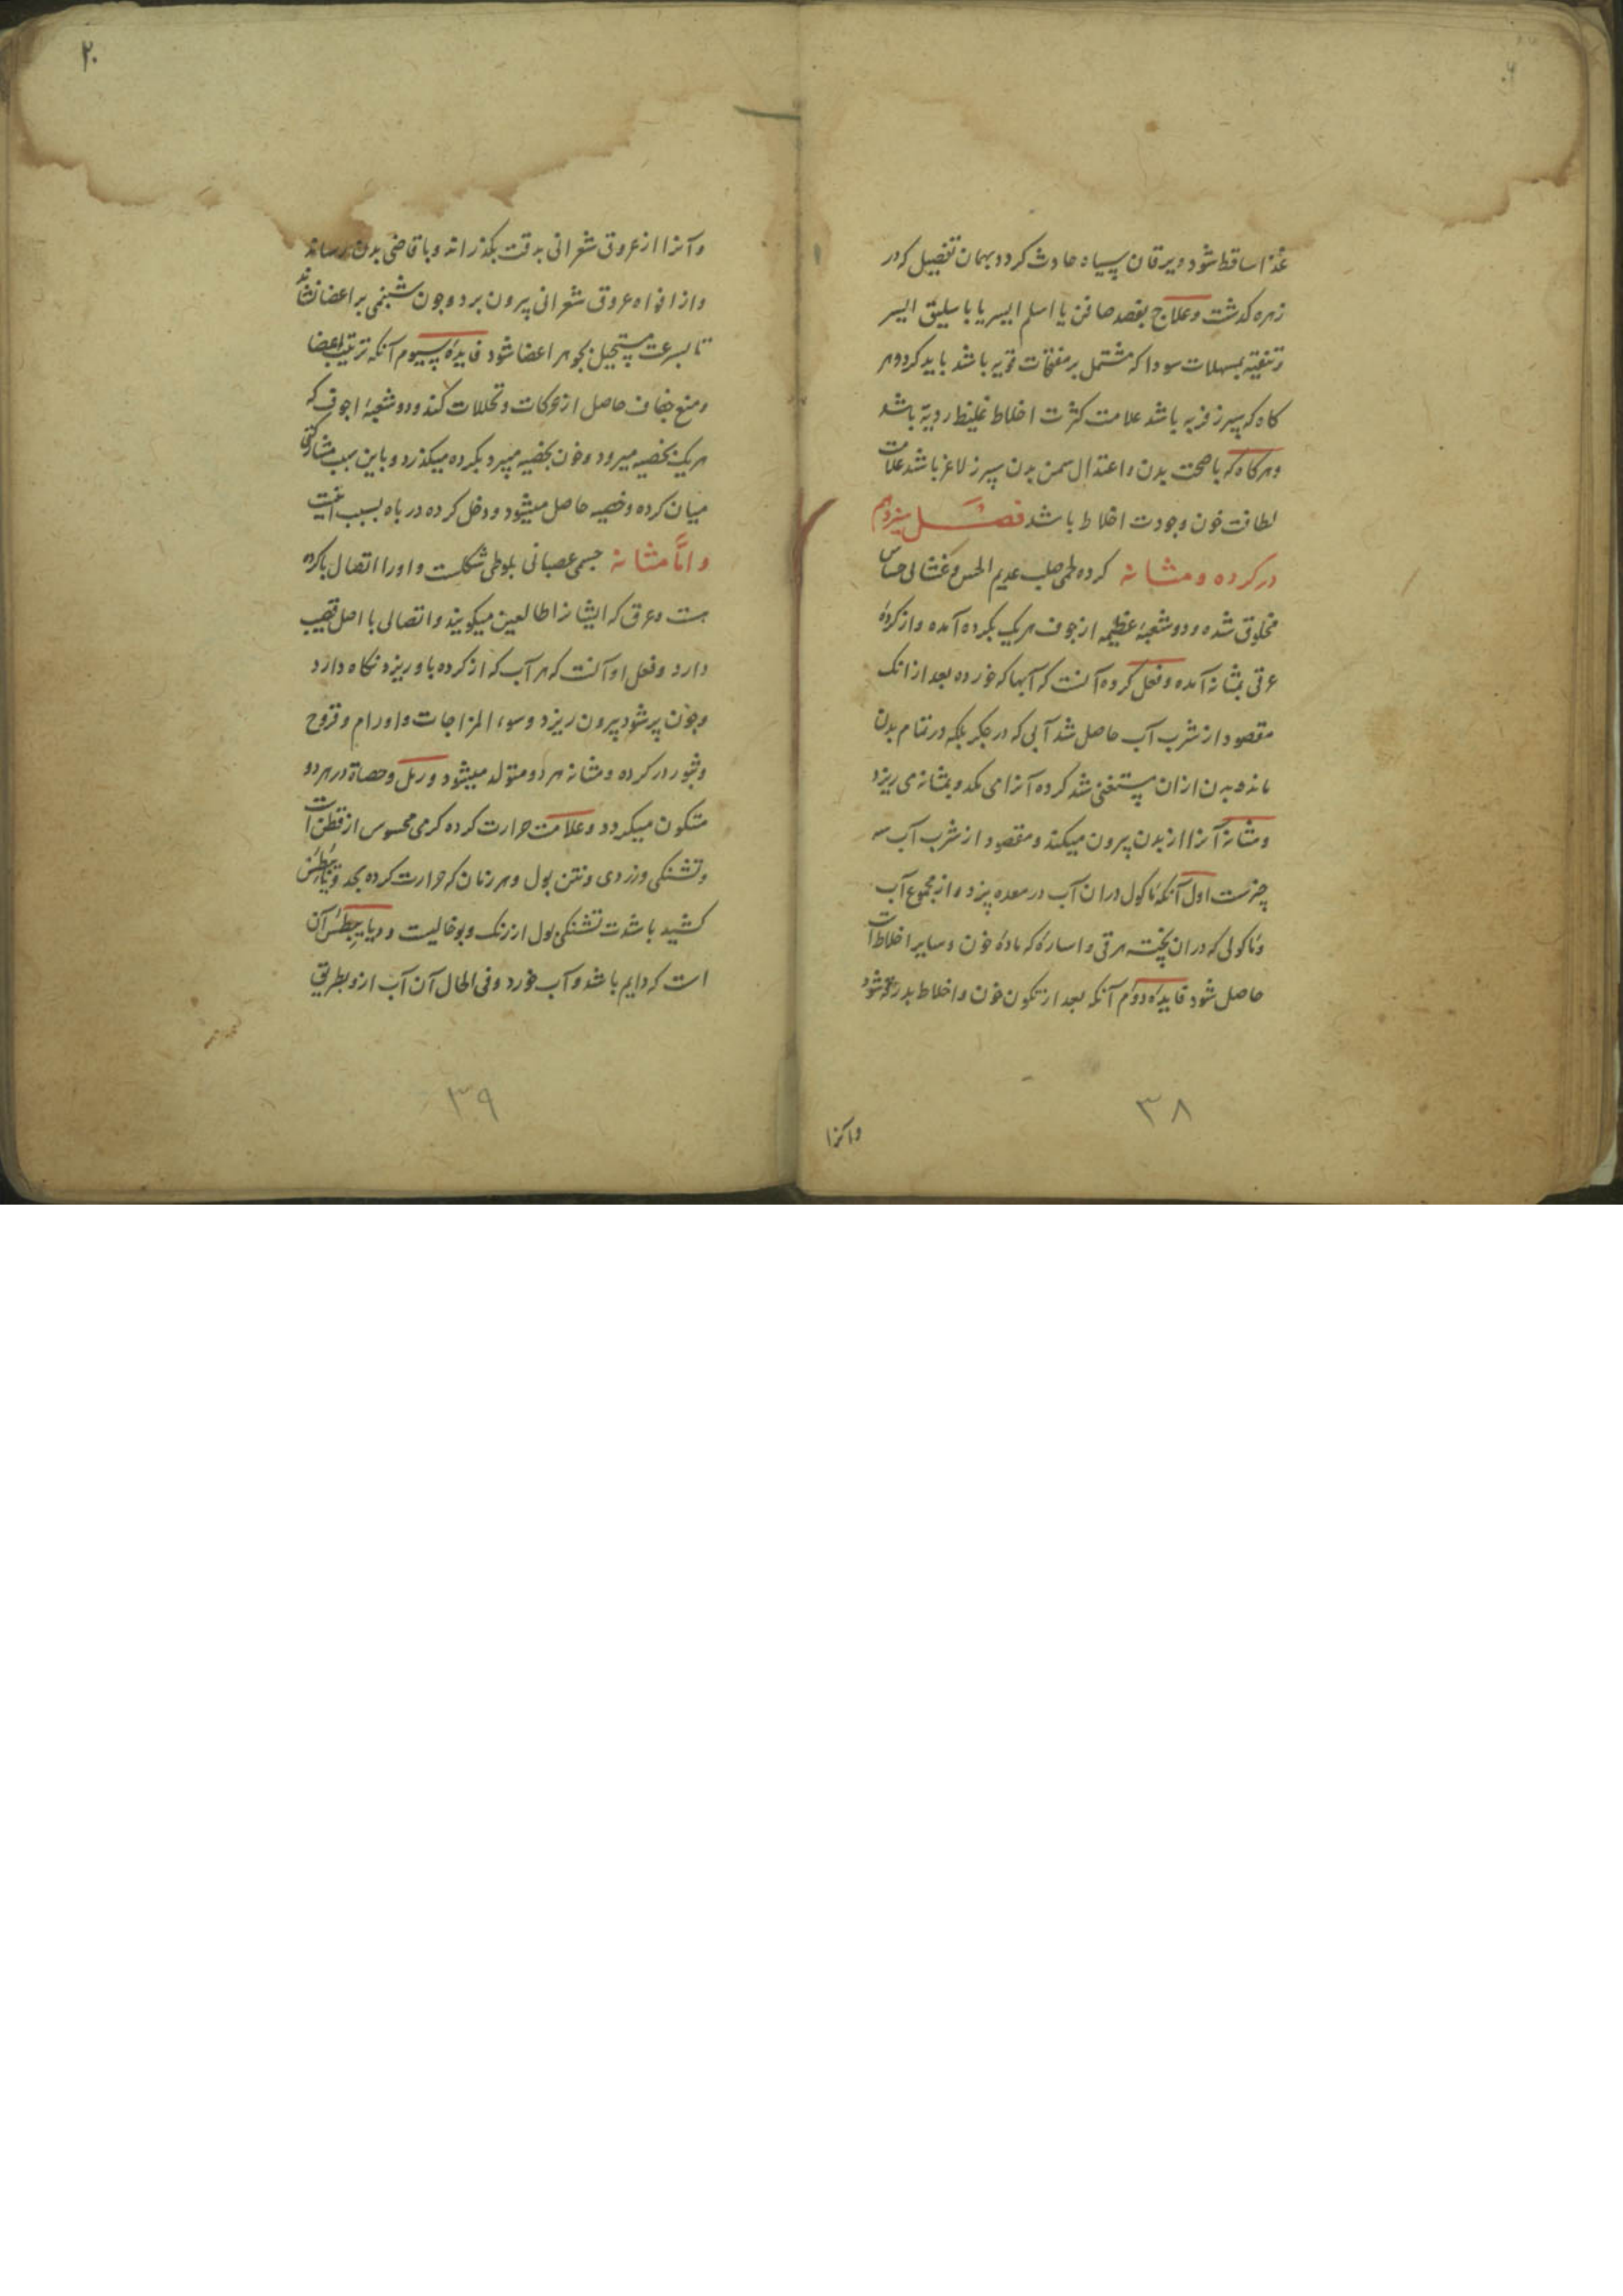 غذا ساقط شود و یرقان سیاه حادث کردد و بهمان تفصیل که در
زهره کذشت وعلاج بفصد صافن یا اسلم ایسر یا باسلیق ایسر
وتنقیه بمسهلات سودا که مشتمل بر مفتحات قویه باشد باید کرد و هر
کاه که سپرز فربه باشد علامت کثرت اخلاط غلیظ ردیه باشد
وهرکاه که با صحت بدن و اعتدال سمن بدن سپرز لاغر باشد علامت
لطافت خون وجودت اخلاط باشد فصل سیزدهم
در کرده ومثانه کرده لحمی صلب عدیم الحس و غشائی حساس
مخلوق شده و دو شعبهٔ عظیمه از جوف هریک بکرده آمده و از کردهٔ
عرقی بمثانه آمده وفعل کرده آنست که آبها که خورده بعد از انک
مقصود از شرب آب حاصل شد آبی که در جکر بلکه در تمام بدن
ماند و بدن از ان مستغنی شد کرده آنرا می مکد و بمثانه می ریزد
ومثانه آنرا از بدن بیرون میکند ومقصود از شرب آب سه
چیزست اول آنکه ماکول در ان آب در معده پزد و از مجموع آب
وماکولی که در ان پخته مرقی و اساره که مادهٔ خون وسایر اخلاط است
حاصل شود فایدهٔ دوم آنکه بعد از تکون خون واخلاط بدرقه شود
وآنرا
٣٨
٢٠
وآنرا از عروق شعرانی بدقت بکذراند وباقاصی بدن رساند
واز افواه عروق شعرانی بیرون برد وچون شبنمی بر اعضا نشاند
تا بسرعت مستحیل بجوهر اعضا شود فایدهٔ سیوم آنکه ترتیب اعضا
ومنع جفاف حاصل از حرکات وتحللات کند ودو شعبهٔ اجوف که
هریک بخصیه میرود وخون بخصیه میبرد بکرده میکذرد و باین سبب مشارکتی
میان کرده وخصیه حاصل میشود ودخل کرده در باه بسبب اینست
واما مثانه جسمی عصبانی بلوطی شکلست واو را اتصال با کرده
هست وعرق که ایشانرا طالعین میکویند واتصالی با اصل قضیب
دارد وفعل او آنست که هر آب که از کرده باو ریزد نکاه دارد
وچون پر شود بیرون ریزد وسوء المزاجات واورام وقروح
وبثور در کرده ومثانه هر دو متولد میشود ورمل وحصاة در هر دو
متکون میکردد وعلامت حرارت کرده کرمی محسوس از قطن است
وتشنکی وزردی ونتن بول وهر زمان که حرارت کرده بحد دیابیطس
کشید باشدت تشنکی بول از رنک وبو خالیست و دیابیطس آن
است که دایم باشد و آب خورد وفی الحال آن آب ازو بطریق
٣٩